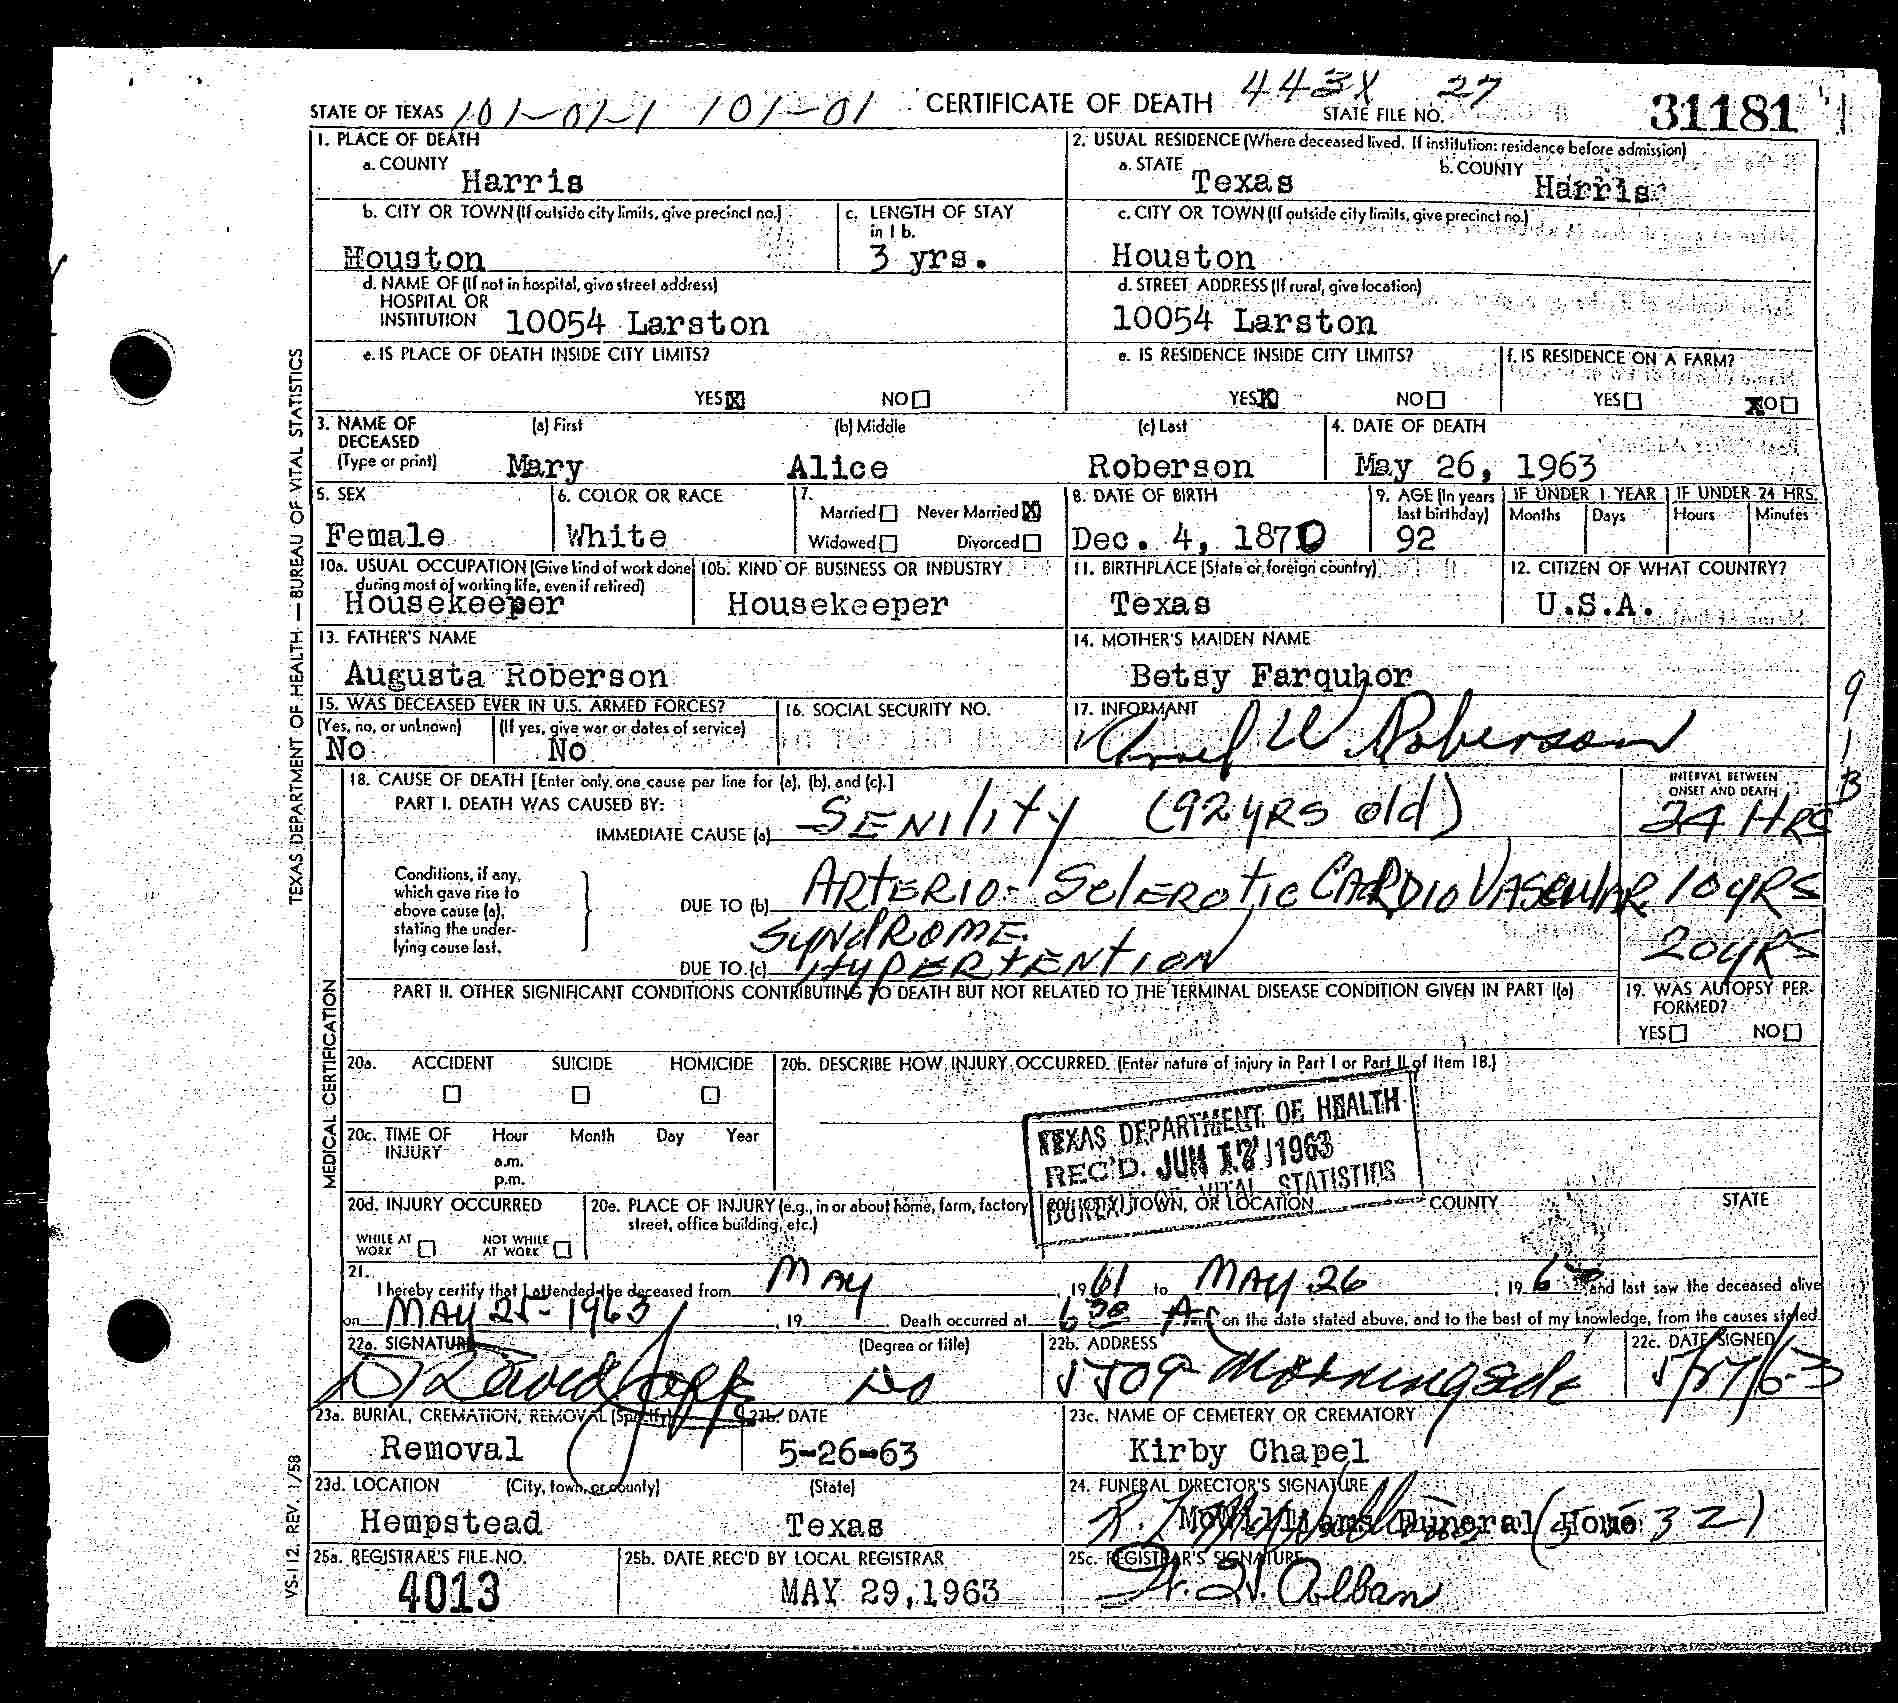 STATE OF TEXAS 101-01-1 101-01 CERTIFICATE OF DEATH 443X 27 STATE FILE NO. 31181
1. PLACE OF DEATH
a. COUNTY Harris
2. USUAL RESIDENCE (Where deceased lived. If institution: residence before admission)
a. STATE Texas b. COUNTY Harris
b. CITY OR TOWN (If outside city limits, give precinct no.)
Houston
c. LENGTH OF STAY in 1b.
3 yrs.
c. CITY OR TOWN (If outside city limits, give precinct no.)
Houston
d. NAME OF (If not in hospital, give street address)
HOSPITAL OR
INSTITUTION 10054 Larston
d. STREET ADDRESS (If rural, give location)
10054 Larston
e. IS PLACE OF DEATH INSIDE CITY LIMITS?
YES X NO
e. IS RESIDENCE INSIDE CITY LIMITS?
YES X NO
f. IS RESIDENCE ON A FARM?
YES NO
3. NAME OF DECEASED (Type or print)
(a) First (b) Middle (c) Last
Mary Alice Roberson
4. DATE OF DEATH
May 26, 1963
5. SEX
Female
6. COLOR OR RACE
White
7.
Married Never Married X
Widowed Divorced
8. DATE OF BIRTH
Dec. 4, 1870
9. AGE (In years last birthday)
92
IF UNDER 1 YEAR
Months Days
IF UNDER 24 HRS.
Hours Minutes
10a. USUAL OCCUPATION (Give kind of work done during most of working life, even if retired)
Housekeeper
10b. KIND OF BUSINESS OR INDUSTRY
Housekeeper
11. BIRTHPLACE (State or foreign country)
Texas
12. CITIZEN OF WHAT COUNTRY?
U.S.A.
13. FATHER'S NAME
Augusta Roberson
14. MOTHER'S MAIDEN NAME
Betsy Farquhor
15. WAS DECEASED EVER IN U.S. ARMED FORCES?
(Yes, no, or unknown) (If yes, give war or dates of service)
No No
16. SOCIAL SECURITY NO.
17. INFORMANT
W Roberson
18. CAUSE OF DEATH [Enter only one cause per line for (a), (b), and (c).]
PART I. DEATH WAS CAUSED BY:
IMMEDIATE CAUSE (a) SENILITY (92 YRS old)
INTERVAL BETWEEN ONSET AND DEATH
24 HRS
Conditions, if any, which gave rise to above cause (a), stating the underlying cause last.
DUE TO (b) ARTERIO-SCLEROTIC CARDIOVASCULAR 10 YRS
SYNDROME
DUE TO (c) HYPERTENTION 20 YRS
PART II. OTHER SIGNIFICANT CONDITIONS CONTRIBUTING TO DEATH BUT NOT RELATED TO THE TERMINAL DISEASE CONDITION GIVEN IN PART I(a)
19. WAS AUTOPSY PERFORMED?
YES NO
20a. ACCIDENT SUICIDE HOMICIDE
20b. DESCRIBE HOW INJURY OCCURRED. (Enter nature of injury in Part I or Part II of Item 18.)
TEXAS DEPARTMENT OF HEALTH
REC'D. JUN 17 1963
BUREAU OF VITAL STATISTICS
20c. TIME OF INJURY
Hour Month Day Year
a.m.
p.m.
20d. INJURY OCCURRED
WHILE AT WORK NOT WHILE AT WORK
20e. PLACE OF INJURY (e.g., in or about home, farm, factory, street, office building, etc.)
20f. CITY, TOWN, OR LOCATION COUNTY STATE
21.
I hereby certify that I attended the deceased from MAY, 1961 to MAY 26, 1963 and last saw the deceased alive
on MAY 25-1963, 19 . Death occurred at 6 30 A m on the date stated above, and to the best of my knowledge, from the causes stated.
22a. SIGNATURE (Degree or title)
David
22b. ADDRESS
5509 Morningside
22c. DATE SIGNED
5/27/63
23a. BURIAL, CREMATION, REMOVAL (Specify)
Removal
23b. DATE
5-26-63
23c. NAME OF CEMETERY OR CREMATORY
Kirby Chapel
23d. LOCATION (City, town, or county) (State)
Hempstead Texas
24. FUNERAL DIRECTOR'S SIGNATURE
McWilliams Funeral Home
25a. REGISTRAR'S FILE NO.
4013
25b. DATE REC'D BY LOCAL REGISTRAR
MAY 29, 1963
25c. REGISTRAR'S SIGNATURE
Alban
TEXAS DEPARTMENT OF HEALTH — BUREAU OF VITAL STATISTICS
MEDICAL CERTIFICATION
VS-112, REV. 1/58
9
1
B